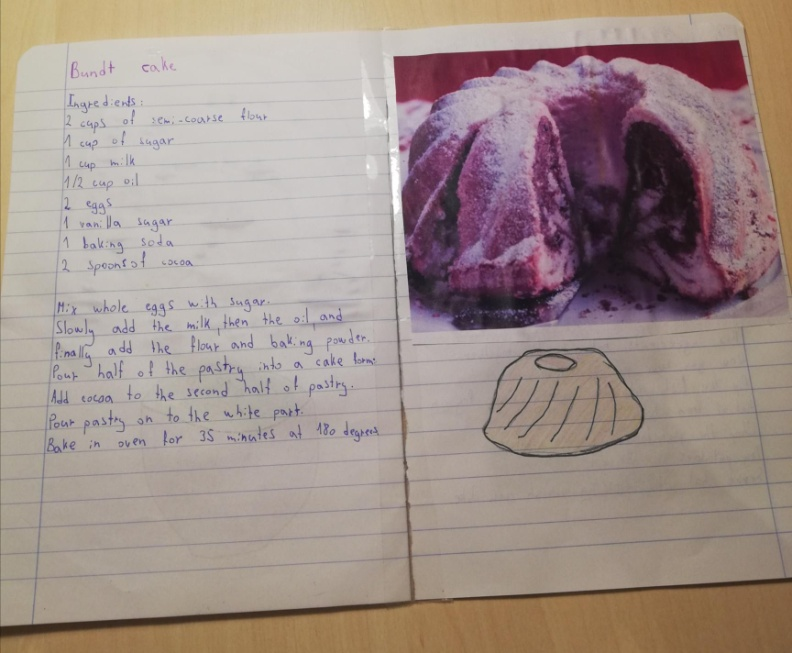 Bundt cake
Ingredients:
2 cups of semi-coarse flour
1 cup of sugar
1 cup milk
1/2 cup oil
2 eggs
1 vanilla sugar
1 baking soda
2 spoons of cocoa
Mix whole eggs with sugar.
Slowly add the milk, then the oil, and
finally add the flour and baking powder.
Pour half of the pastry into a cake form.
Add cocoa to the second half of pastry.
Pour pastry on to the white part.
Bake in oven for 35 minutes at 180 degrees